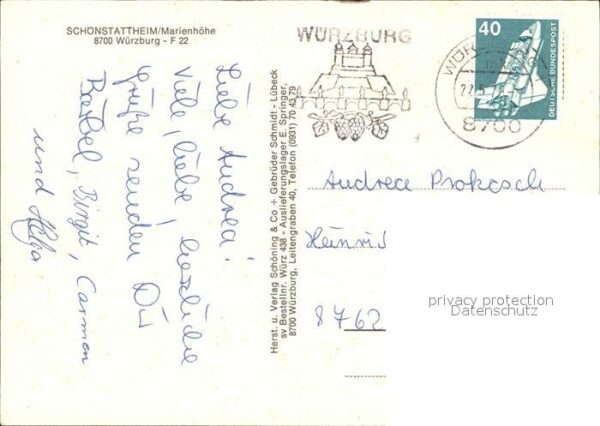 SCHÖNSTATTHEIM/Marienhöhe
8700 Würzburg - F 22
Liebe Andrea!
Viele, liebe, herzliche
Grüße senden Dir
Bärbel, Birgit, Carmen
und Helga
Herst. u. Verlag Schöning & Co + Gebrüder Schmidt - Lübeck
sv Bestellnr. Würz 438 - Auslieferungslager E. Springer,
8700 Würzburg, Leitengraben 40, Telefon (0931) 70 43 79
WÜRZBURG
8700
40
DEUTSCHE BUNDESPOST
Andrea Prokosch
Heinric
8762
privacy protection
Datenschutz